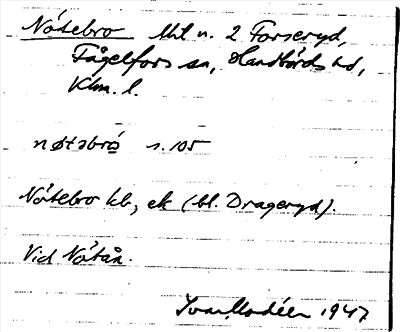 Nótebro Mtl n. 2 Forseryd,
Fågelfors sn, Handbörds hd,
Klm. l.
nøtəbró s. 105
Nótebro kb, ek (bl. Drageryd).
Vid Nótån.
Ivar Modéer 1947